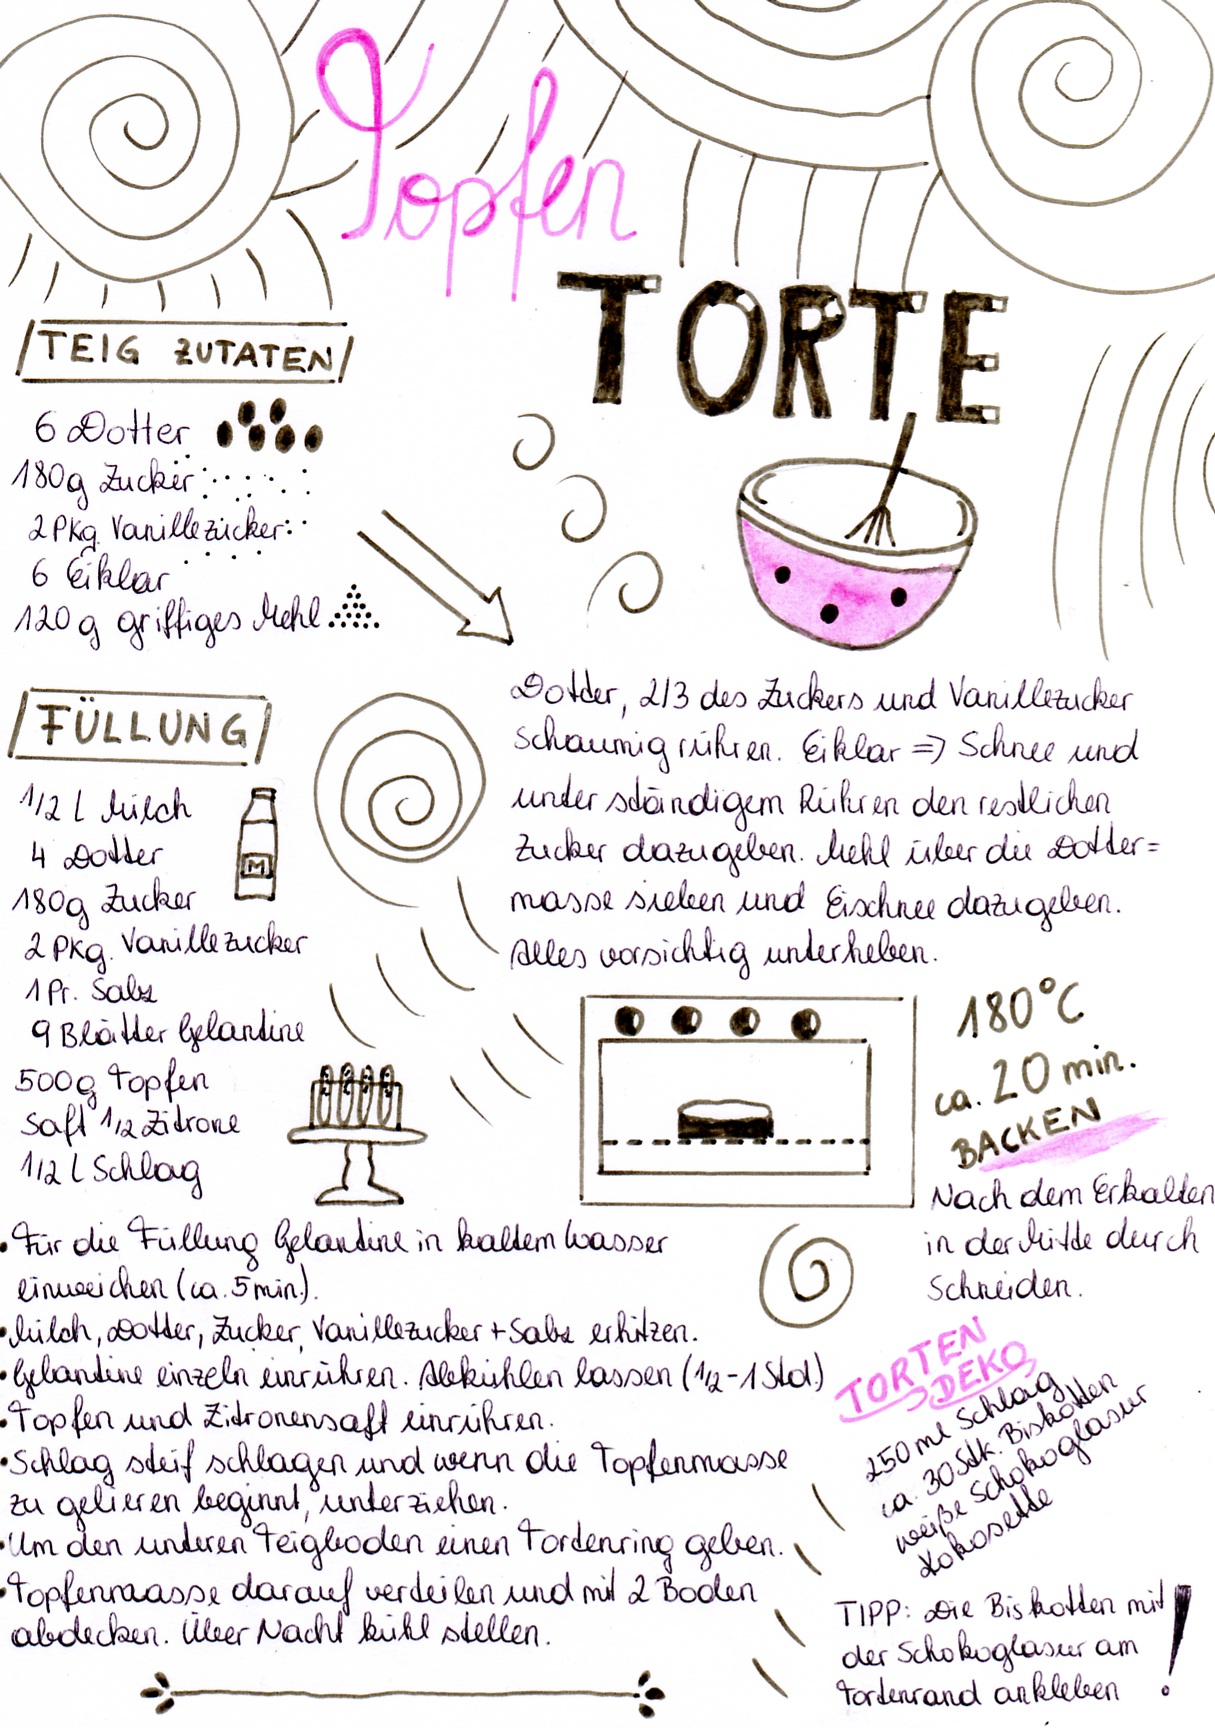 Topfen
TORTE
TEIG ZUTATEN
6 Dotter
180g Zucker
2 Pkg. Vanillezucker
6 Eiklar
120 g griffiges Mehl
Dotter, 2/3 des Zuckers und Vanillezucker
schaumig rühren. Eiklar => Schnee und
unter ständigem Rühren den restlichen
Zucker dazugeben. Mehl über die Dotter=
masse sieben und Eischnee dazugeben.
Alles vorsichtig unterheben.
180°C
ca. 20 min.
BACKEN
Nach dem Erkalten
in der Mitte durch
schneiden.
FÜLLUNG
1/2 l Milch
4 Dotter
180g Zucker
2 Pkg. Vanillezucker
1 Pr. Salz
9 Blätter Gelantine
500g Topfen
Saft 1/2 Zitrone
1/2 l Schlag
M
• Für die Füllung Gelantine in kaltem Wasser
einweichen (ca. 5 min.).
• Milch, Dotter, Zucker, Vanillezucker + Salz erhitzen.
• Gelantine einzeln einrühren. Abkühlen lassen (1/2 - 1 Std.)
• Topfen und Zitronensaft einrühren.
• Schlag steif schlagen und wenn die Topfenmasse
zu gelieren beginnt, unterziehen.
• Um den unteren Teigboden einen Tortenring geben.
• Topfenmasse darauf verteilen und mit 2 Boden
abdecken. Über Nacht kühl stellen.
TORTEN
DEKO
250 ml Schlag
ca. 30 Stk. Biskotten
weiße Schokoglasur
Kokosette
TIPP: Die Biskotten mit
der Schokoglasur am
Tortenrand ankleben !